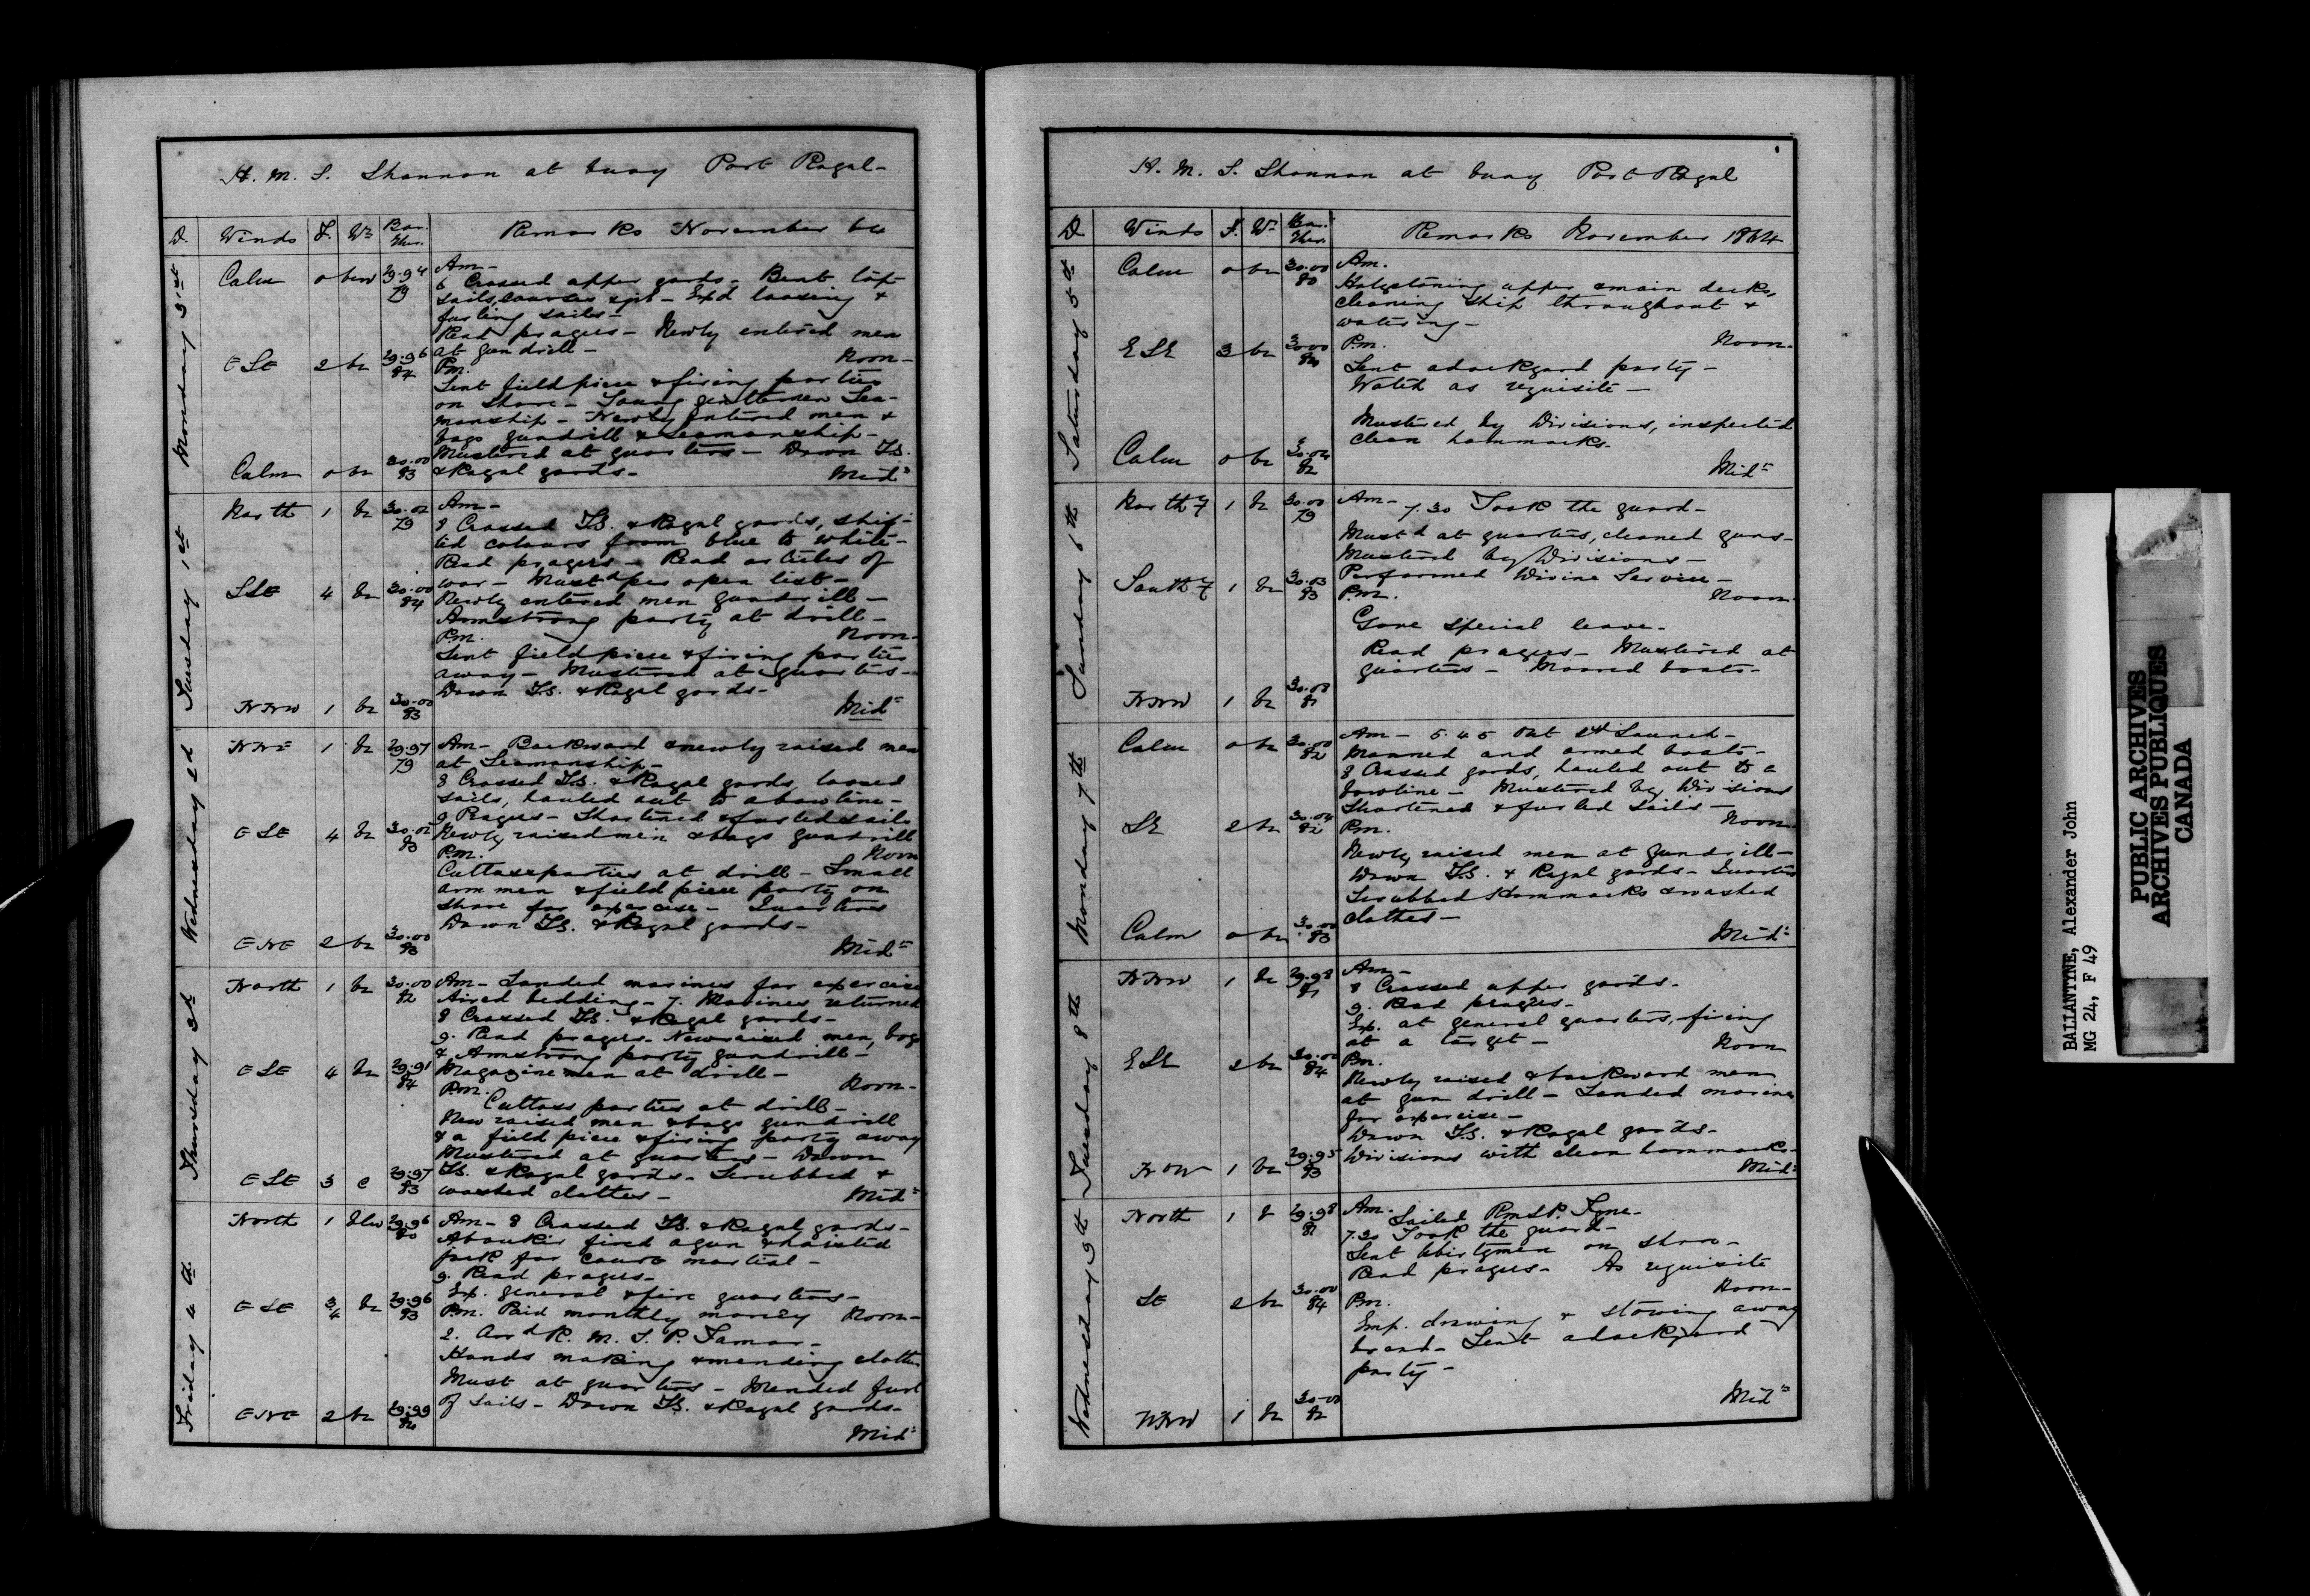 H. M. S. Shannon at buoy Port Royal-
D. Winds F. Wr Bar. Ther. Remarks November 64
Monday 31st
Calm 0 bcw 29.94 79
Am-
6 Crossed upper yards - Bent top
sails, courses & jib - Exd loosing &
furling sails -
Read prayers - Newly entered men
at gun drill - Noon-
ESE 2 bc 29.96 84
Pm.
Sent field piece & firing parties
on shore - Young gentlemen Sea-
manship - Newly entered men &
boys gundrill & seamanship -
Mustered at quarters - Down T.G.
& Royal yards - Midt
Calm 0 bc 30.00 83
Tuesday 1st
North 1 bc 30.02 79
Am-
8 Crossed T.G. & Royal yards, shif-
ted colours from blue to white -
Read prayers - Read articles of
war - Mustd per open list -
Newly entered men gundrill -
Armstrong party at drill -
SSE 4 bc 30.00 84
Pm. Noon-
Sent field piece & firing parties
away - Mustered at quarters -
Down T.G. & Royal yards -
Midt
NNW 1 bc 30.00 83
Wednesday 2d
NNE 1 bc 29.97 79
Am - Backward & newly raised men
at Seamanship -
8 Crossed T.G. & Royal yards, loosed
sails, hauled out to a bowline -
9 Prayers - Shortened & furled sails
Newly raised men & boys gundrill
ESE 4 bc 30.02 83
P.m. Noon
Cutlass parties at drill - Small
arm men & field piece party on
shore for exercise - Quarters
Down T.G. & Royal yards -
Midt
ENE 2 bc 30.00 83
Thursday 3d
North 1 bc 30.00 82
Am - Landed marines for exercise
Aired bedding - 7. Marines returned
8 Crossed T.G. & Royal yards -
9. Read prayers - New raised men, boys
& Armstrong party gundrill -
Magazine men at drill -
ESE 4 bc 29.91 84
P.m. Noon-
Cutlass parties at drill -
New raised men & boys gundrill
& a field piece & firing party away
Mustered at quarters - Down
T.G. & Royal yards - Scrubbed &
washed clothes - Midt
ESE 3 c 29.97 83
Friday 4th
North 1 29.96 80
Am - 8 Crossed T.G. & Royal yards -
Aboukir fired a gun & hoisted
jack for court martial -
9. Read prayers -
Exp. general & fire quarters -
ESE 3/4 bc 29.96 83
P.m. Paid monthly money Noon-
2. Arrd R. M. S. P. Tamar -
Hands making & mending clothes
Must at quarters - Mended furl
of sails - Down T.G. & Royal yards -
Midt
ENE 2 bc 29.99 82
H. M. S. Shannon at buoy Port Royal
D Winds F. Wr Bar. Ther. Remarks November 1864
Saturday 5th
Calm 0 bc 30.00 80
Am.
Holystoning upper & main decks,
cleaning ship throughout &
watering -
Noon-
ESE 3 bc 30.00 84
P.m.
Sent a dockyard party -
Watch as requisite -
Mustered by Divisions, inspected
clean hammocks -
Midt
Calm 0 bc 30.02 82
Sunday 6th
Northy 1 bc 30.00 79
Am- 7.30 Took the guard -
Mustd at quarters, cleaned guns -
Mustered by Divisions -
Performed Divine Service -
Southy 1 bc 30.03 83
P.m. Noon-
Gave special leave -
Read prayers - Mustered at
quarters - Moored boats -
NNW 1 bc 30.02 81
Monday 7th
Calm 0 bc 30.00 82
Am - 5.45 Out 2nd Launch -
Manned and armed boats -
8 Crossed yards, hauled out to a
bowline - Mustered by Divisions
Shortened & furled sails -
SE 2 bc 30.04 82
P.m. Noon-
Newly raised men at gundrill -
Down T.G. & Royal yards - Quarters
Scrubbed Hammocks & washed
clothes -
Midt
Calm 0 bc 30.00 83
Tuesday 8th
NNW 1 bc 29.98 81
Am -
8 Crossed upper yards -
9. Read prayers -
Exp. at general quarters, firing
at a target - Noon
ESE 2 bc 30.00 84
Pm.
Newly raised & backward men
at gun drill - Landed marines
for exercise -
Down T.G. & Royal yards -
Divisions with clean hammocks -
Midt
NW 1 bc 29.95 83
Wednesday 9th
North 1 b 29.98 81
Am. Sailed RMSP. Tyne -
7.30 Took the guard -
Sent libertymen on shore -
Read prayers - As requisite
Noon-
SE 2 bc 30.00 84
P.m.
Emp. drawing & stowing away
bread - Sent a dockyard
party -
Midt
NNW 1 bc 30.00 82
BALLANTINE, Alexander John
MG 24, F 49
PUBLIC ARCHIVES
ARCHIVES PUBLIQUES
CANADA